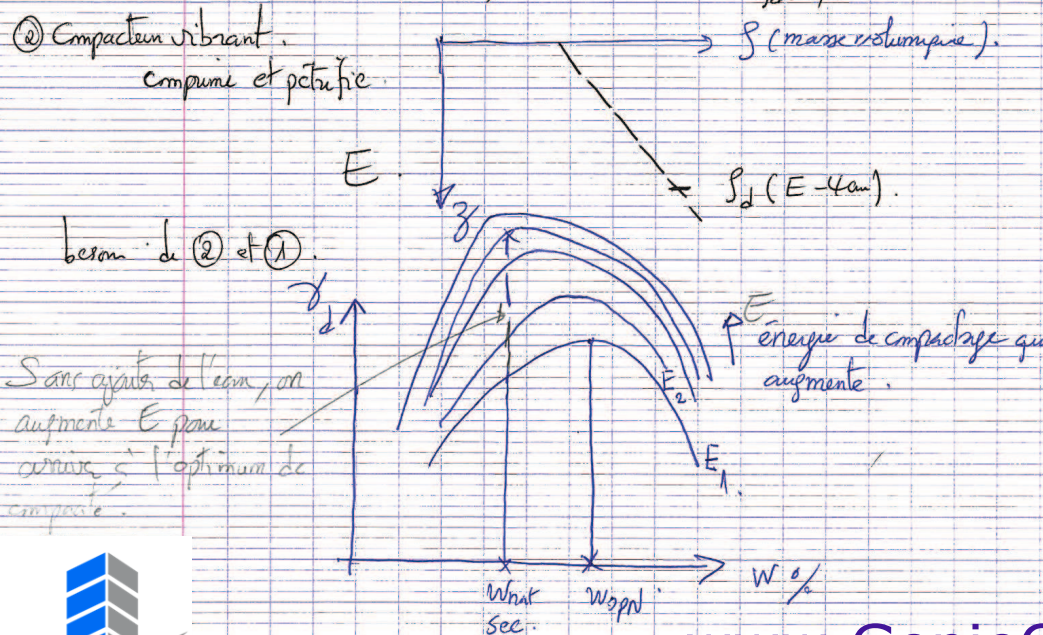 ② Compacteur vibrant.
comprime et petrifie.
ρ (masse volumique).
E.
ρd (E-4cm).
besoin de ② et ①.
z
γd
E
énergie de compactage qui
augmente.
Sans ajouter de l'eau, on
augmente E pour
arriver à l'optimum de
compacité.
E2
E1.
W %
Wnat
sec.
WOPN.